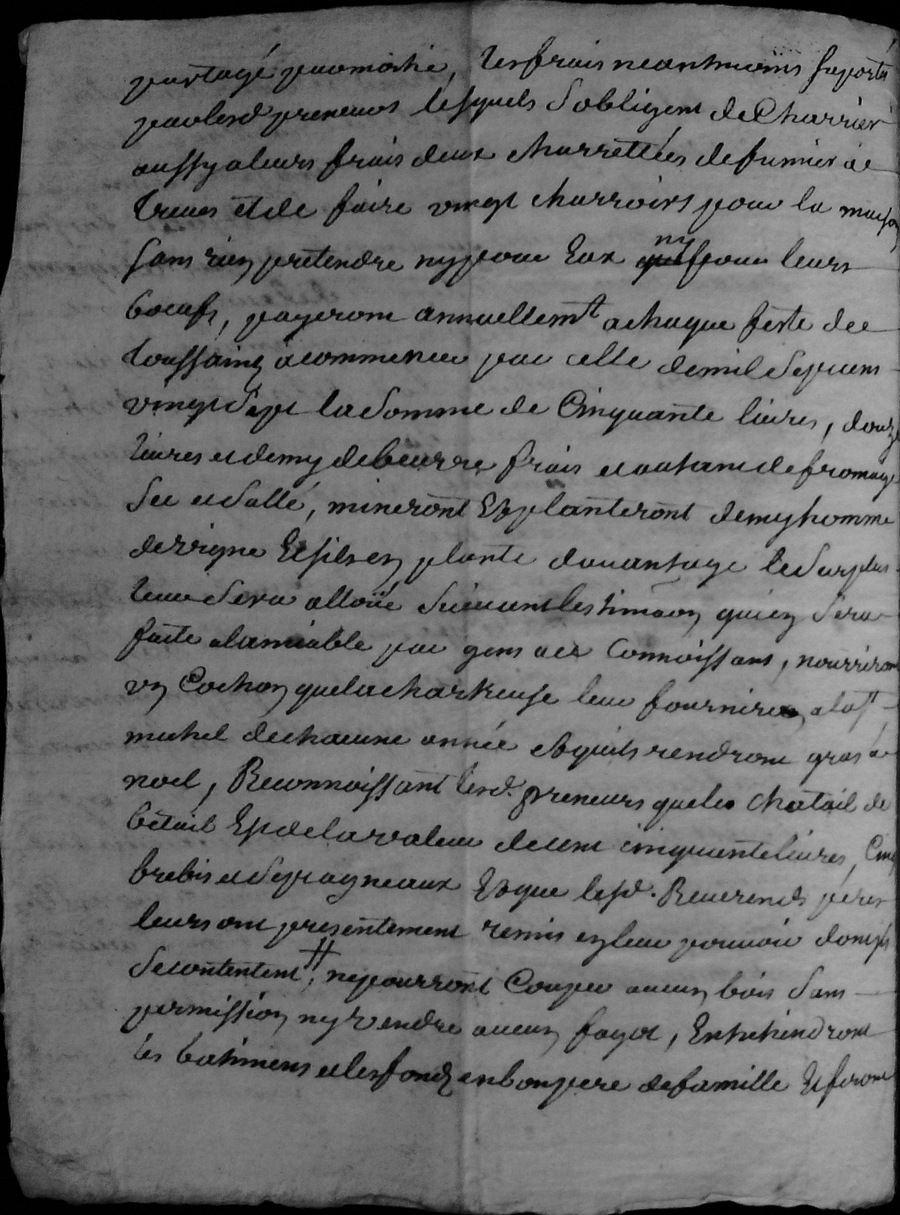 partagé par moitié, les frais neantmoins suporté
par lesd preneurs lesquels s'obligent de Charrier
aussy a leurs frais deux charrettées de fumier a
Treues et de faire vingt charroirs pour la maison
sans rien pretendre ny pour Eux ny pour leurs
boeufs, payeront annuellemt a chaque feste de
toussaint a commencer par celle de mil sept cens
vingt sept la somme de Cinquante livres, douze
livres et demy de beurre frais et autant de fromage
sec et sallé, mineront Et planteront demy homme
de vigne Et sils en plante davantage le surplus
leur sera alloüé suivant lestimaon qui en sera
faite a lamiable par gens a ce Connoissans, nourriront
vn Cochon que la chartreuse leur fournira a la st
michel de chacune année Et quils rendront gras a
noel, Reconnoissant lesd. preneurs que le Chatail de
bétail Est de la valeur de cent cinquante livres, Cinq
brebis et sept agneaux Et que lesd. Reverends peres
leurs ont presentement remis en leur pouvoir dont ils
se contentent, ne pourront Couper aucun bois sans
permission ny vendre aucun fagot, Entretiendront
les batimens et les fondz en bon pere de famille Et feront